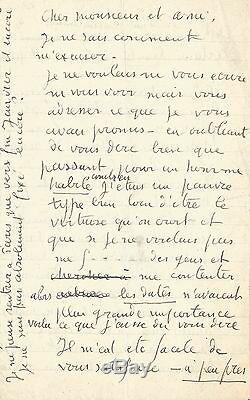 Cher monsieur et ami,
Je ne sais comment
m'excuser.
Je ne voulais ni vous écrire
ni vous voir mais vous
adresser ce que je vous
avais promis - en oubliant
de vous dire bien que
passant pour un homme
habile j'étais un pauvre
type bien loin d'être le
virtuose qu'on croit et
que si je ne voulais pas
me f---- des gens et
chercher à me contenter
alors les dates n'avaient
plus grande importance
voilà ce que j'aurais dû vous dire
Il m'eut été facile de
vous satisfaire - à peu près
Je ne pense rentrer à Paris que vers fin Janvier et encore
je ne suis pas absolument fixé encore.